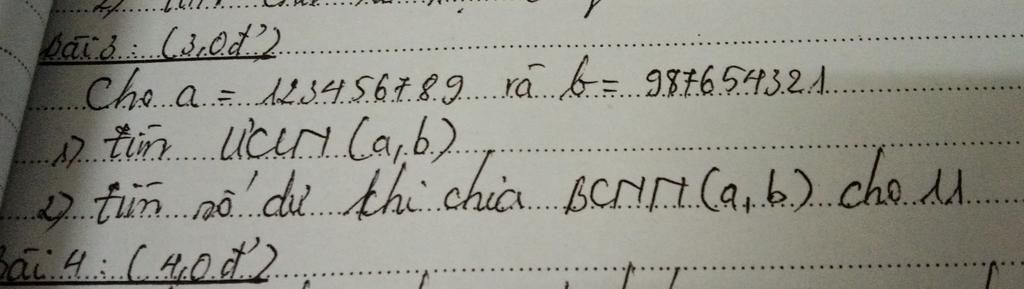 Bài 3: (3,0đ)
Cho a = 123456789 và b = 987654321
1) tìm ƯCLN (a,b)
2) tìm số dư khi chia BCNN (a,b) cho 11
Bài 4: (4,0đ)